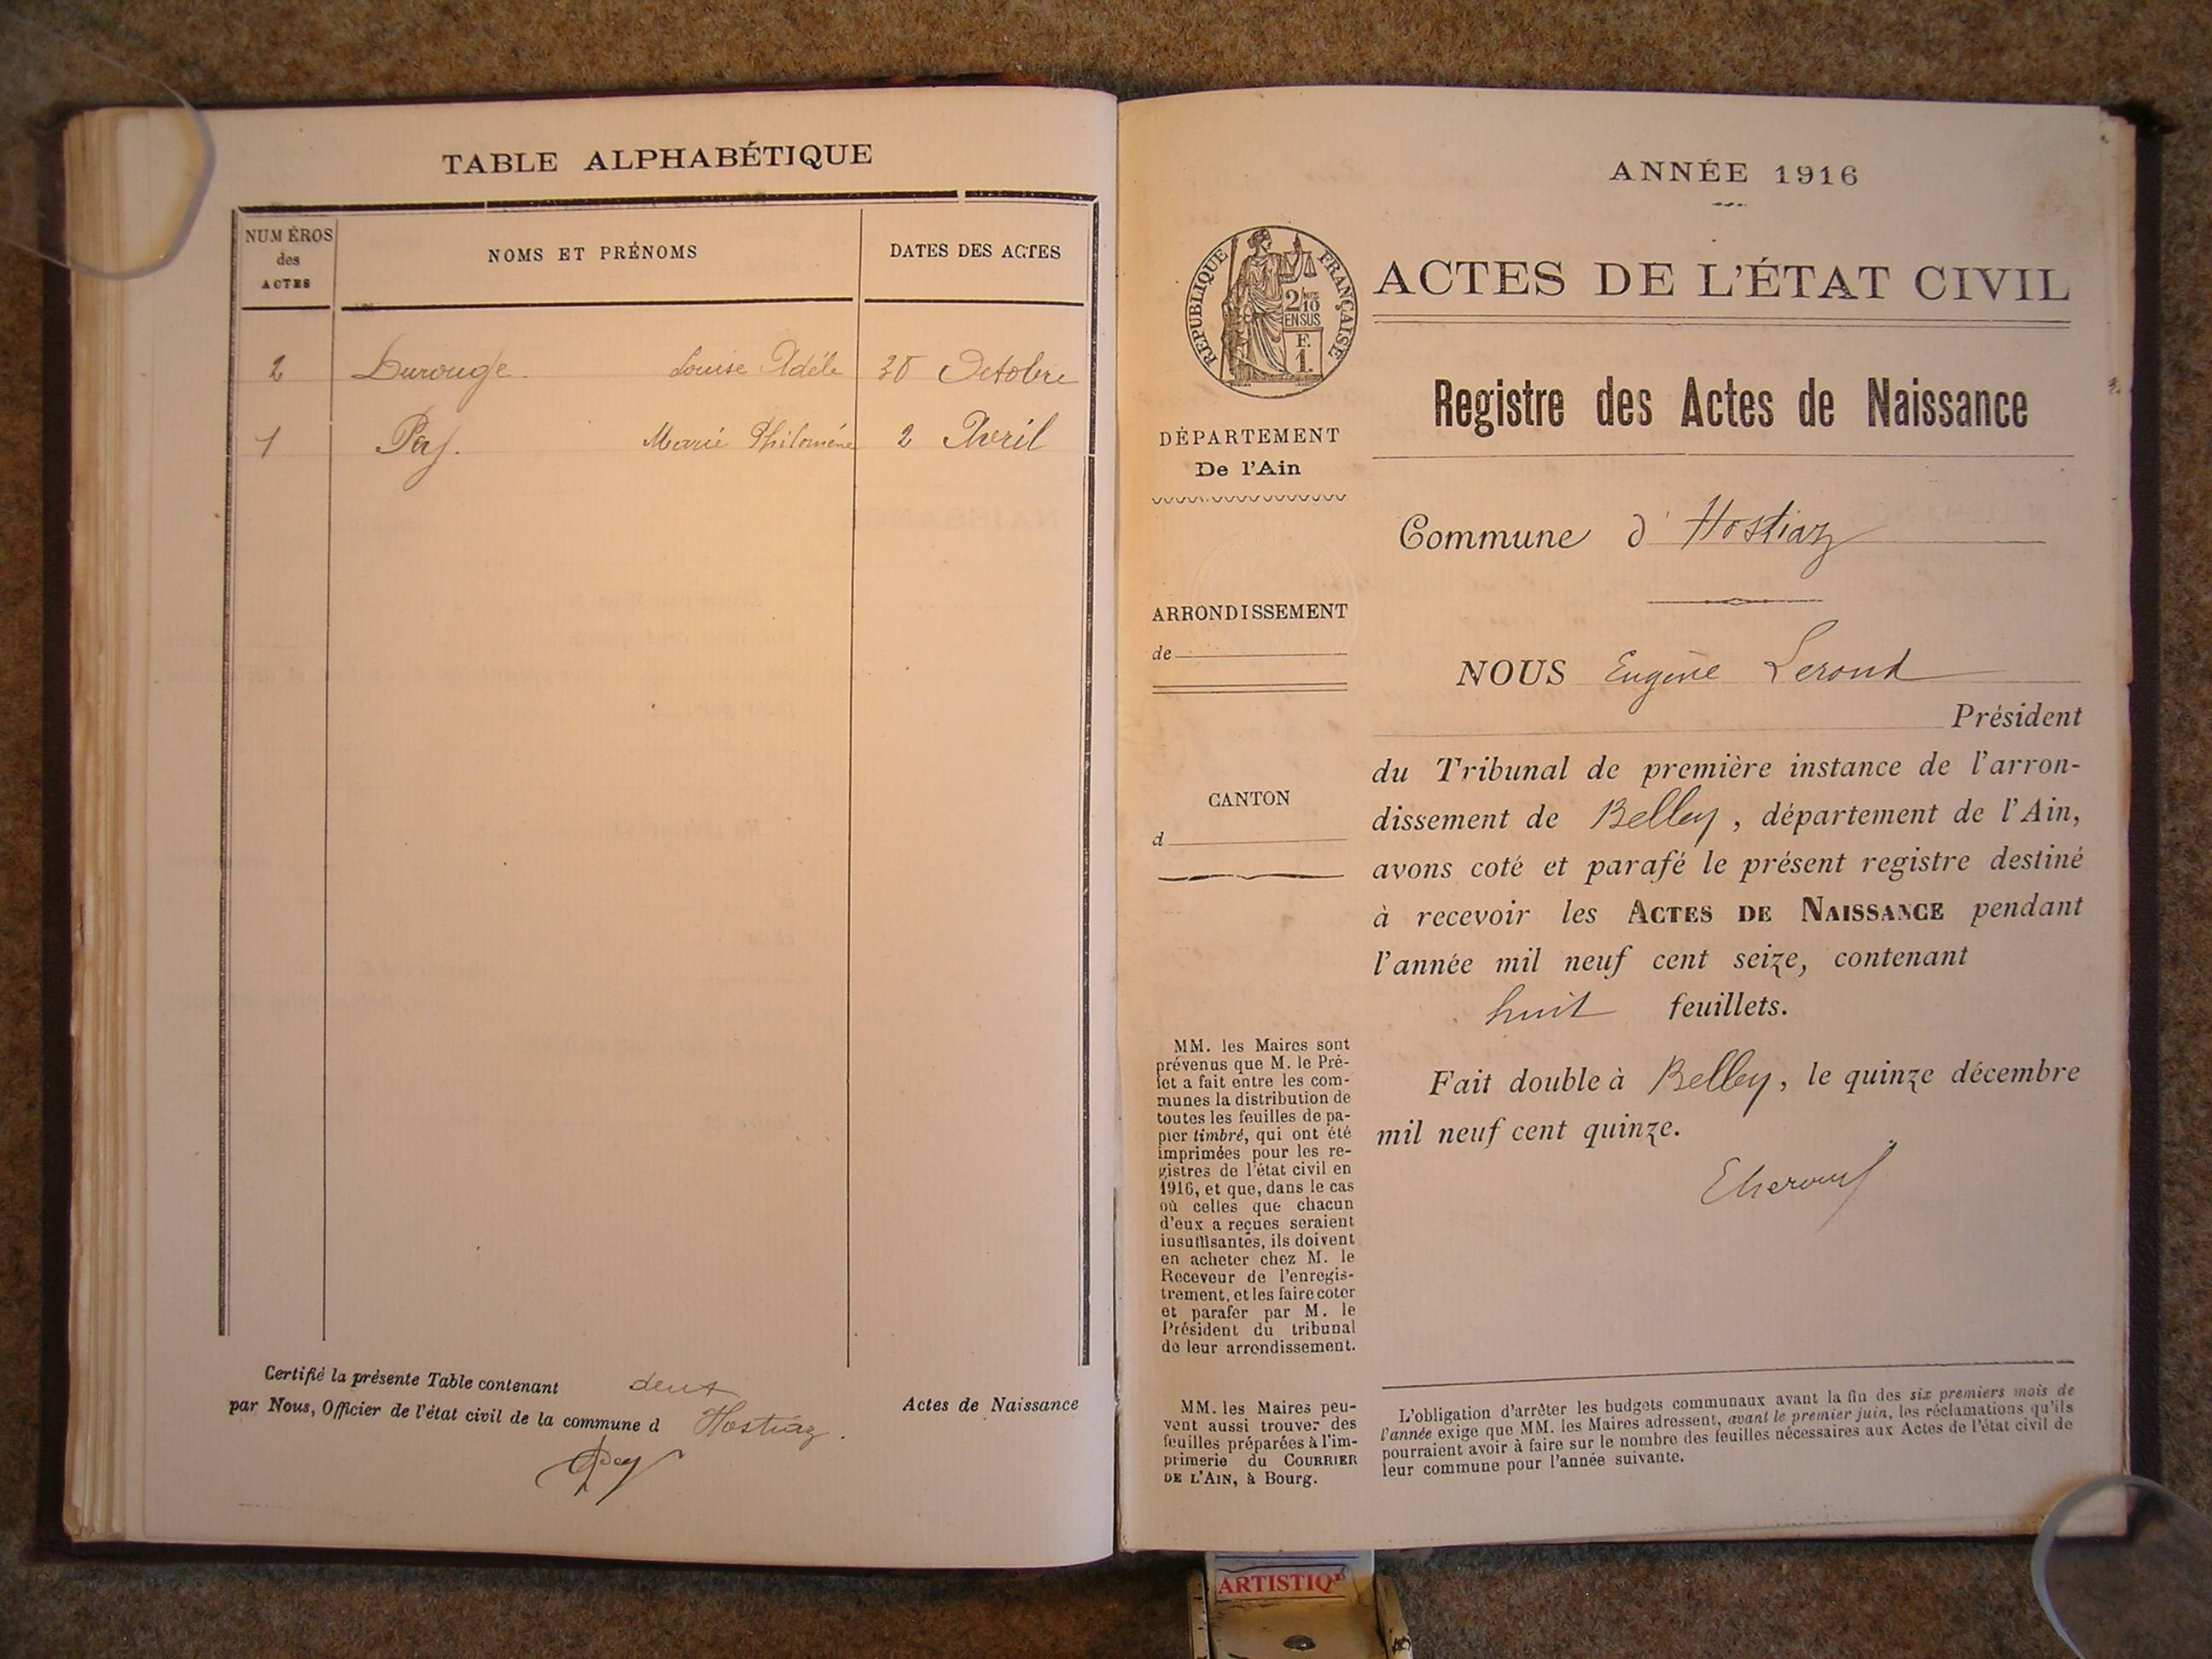 TABLE ALPHABÉTIQUE
NUMÉROS
des
ACTES
NOMS ET PRÉNOMS
DATES DES ACTES
2 Durouge. Louise Adèle 30 Octobre
1 Pay. Marie Philomène 2 Avril
Certifié la présente Table contenant deux Actes de Naissance
par Nous, Officier de l'état civil de la commune d Hostiaz.
ANNÉE 1916
RÉPUBLIQUE FRANÇAISE
2/10
EN SUS
F.
1.
ACTES DE L'ÉTAT CIVIL
Registre des Actes de Naissance
DÉPARTEMENT
De l'Ain
Commune d'Hostiaz
ARRONDISSEMENT
de
CANTON
d
NOUS Eugène
Président
du Tribunal de première instance de l'arron-
dissement de Belley, département de l'Ain,
avons coté et parafé le présent registre destiné
à recevoir les ACTES DE NAISSANCE pendant
l'année mil neuf cent seize, contenant
huit feuillets.
Fait double à Belley, le quinze décembre
mil neuf cent quinze.
MM. les Maires sont
prévenus que M. le Pré-
fet a fait entre les com-
munes la distribution de
toutes les feuilles de pa-
pier timbré, qui ont été
imprimées pour les re-
gistres de l'état civil en
1916, et que, dans le cas
où celles que chacun
d'eux a reçues seraient
insuffisantes, ils doivent
en acheter chez M. le
Receveur de l'enregis-
trement, et les faire coter
et parafer par M. le
Président du tribunal
de leur arrondissement.
MM. les Maires peu-
vent aussi trouver des
feuilles préparées à l'im-
primerie du COURRIER
DE L'AIN, à Bourg.
L'obligation d'arrêter les budgets communaux avant la fin des six premiers mois de
l'année exige que MM. les Maires adressent, avant le premier juin, les réclamations qu'ils
pourraient avoir à faire sur le nombre des feuilles nécessaires aux Actes de l'état civil de
leur commune pour l'année suivante.
ARTISTIQ